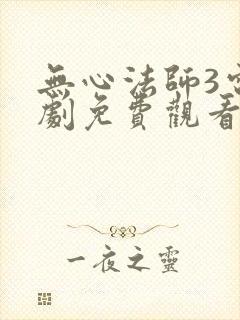 無心法師3電
劇免費觀看
一夜之靈